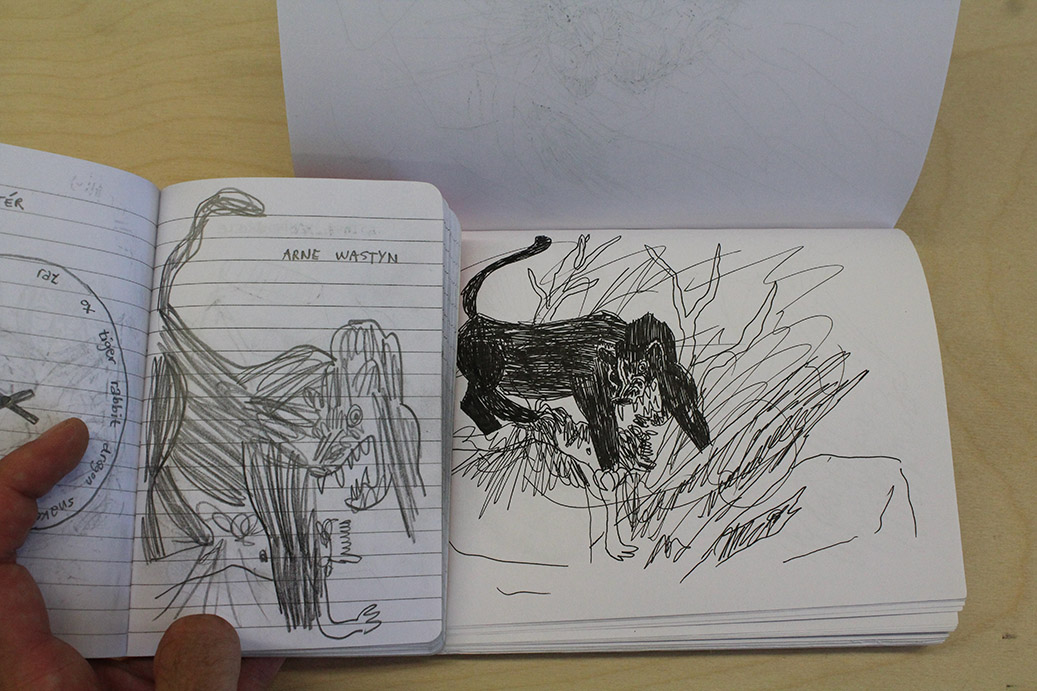 TÉR
rat
ox
tiger
rabbit
dragon
snake
ARNE WASTYN